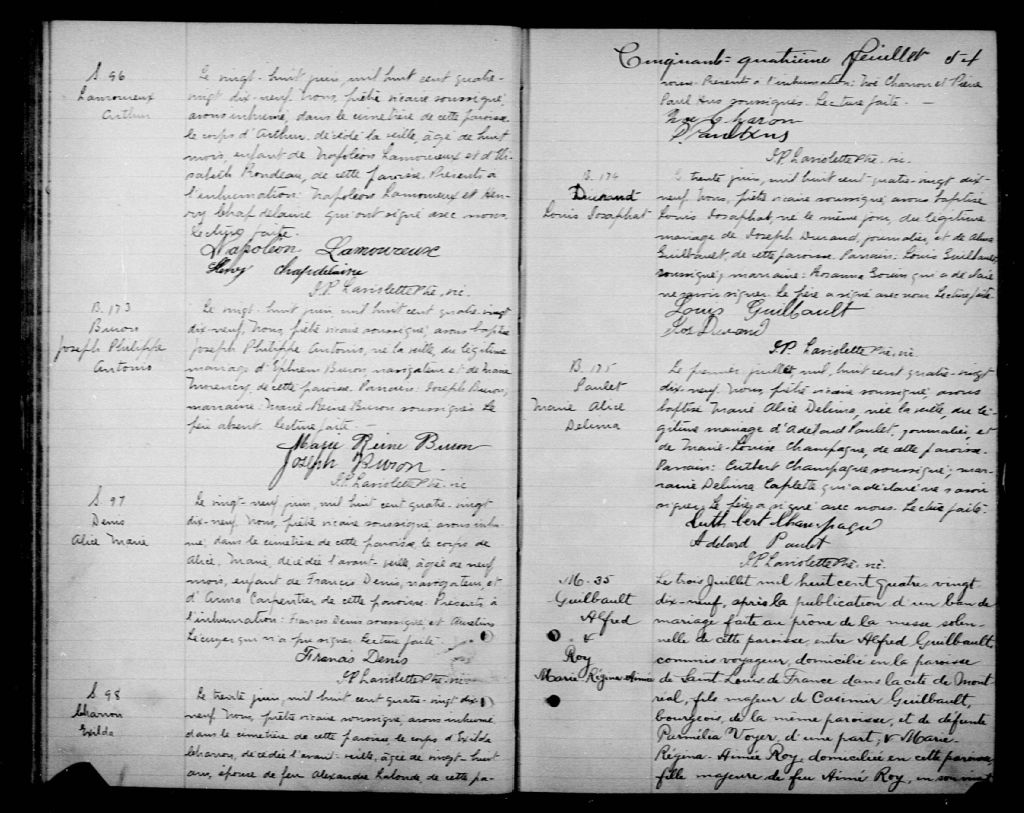 S. 96
Lamoureux
Arthur
Le vingt-huit juin, mil huit cent quatre-
vingt dix-neuf, Nous, prêtre vicaire soussigné,
avons inhumé, dans le cimetière de cette paroisse
le corps d'Arthur, décédé la veille, âgé de huit
mois, enfant de Napoléon Lamoureux et d'
Rondeau, de cette paroisse. Présents à
l'inhumation: Napoléon Lamoureux et Hen-
ry Chapdelaine qui ont signé avec nous.
Lecture faite.
Napoléon Lamoureux
Henry Chapdelaine
J.P. Laviolette Ptre, vic.
B. 173
Buron
Joseph Philippe
Antonio
Le vingt-huit juin, mil huit cent quatre-vingt
dix-neuf, Nous, prêtre vicaire soussigné, avons baptisé
Joseph Philippe Antonio, né la veille, du légitime
mariage d'Ephrem Buron, navigateur et de Marie
de cette paroisse. Parrain: Joseph Buron,
marraine: Marie-Reine Buron soussignés. Le
père absent. Lecture faite. —
Marie Reine Buron
Joseph Buron.
J.P. Laviolette Ptre, vic
S. 97
Denis
Alice Marie
Le vingt-neuf juin, mil huit cent quatre-vingt
dix-neuf, Nous, prêtre vicaire soussigné avons inhu-
mé, dans le cimetière de cette paroisse, le corps de
Alice, Marie, décédée l'avant-veille, âgée de neuf
mois, enfant de Francis Denis, navigateur, et
d'Anna Carpentier de cette paroisse. Présents à
l'inhumation: Francis Denis soussigné, et
Lécuyer qui n'a pu signer. Lecture faite.
Francis Denis
J.P. Laviolette Ptre, vic
S. 98
Charron
Exilda
Le trente juin, mil huit cent quatre-vingt dix-
neuf, Nous, prêtre vicaire soussigné, avons inhumé
dans le cimetière de cette paroisse, le corps d'Exilda
Charron, décédée l'avant-veille, âgée de vingt-huit
ans, épouse de feu Alexandre Lalonde de cette pa-
Cinquante-quatrième feuillet 54
roisse. Présents à l'inhumation: Noé Charron et Pierre
Paul Hus soussignés. Lecture faite. —
Noé Charon
P. Paul Hus
J.P. Laviolette Ptre, vic.
B. 174
Durand
Louis Josaphat
Le trente juin, mil huit cent quatre-vingt dix-
neuf, Nous, prêtre vicaire soussigné, avons baptisé
Louis Josaphat, né le même jour, du légitime
mariage de Joseph Durand, journalier, et de
Guilbault, de cette paroisse. Parrain: Louis Guilbault
soussigné; marraine: Rosanna qui a déclaré
ne savoir signer. Le père a signé avec nous. Lecture faite
Louis Guilbault
Jos Durand
J.P. Laviolette Ptre, vic
B. 175
Paulet
Marie Alice
Delima
Le premier juillet, mil huit cent quatre-vingt
dix-neuf, Nous, prêtre vicaire soussigné, avons
baptisé Marie Alice Delima, née la veille, du lé-
gitime mariage d'Adélard Paulet, journalier, et
de Marie-Louise Champagne, de cette paroisse.
Parrain: Cutbert Champagne soussigné; mar-
raine Delima Caplette qui a déclaré ne savoir
signer. Le père a signé avec nous. Lecture faite.
Cuthbert Champagne
Adelard Paulet
J.P. Laviolette Ptre, vic.
M. 35
Guilbault
Alfred
&
Roy
Marie Régina Aimée
Le trois Juillet mil huit cent quatre vingt
dix-neuf, après la publication d'un ban de
mariage faite au prône de la messe solen-
nelle de cette paroisse, entre Alfred Guilbault,
commis voyageur, domicilié en la paroisse
de Saint Louis de France dans la cité de Mont
réal, fils majeur de Casimir Guilbault,
bourgeois, de la même paroisse, et de défunte
Parmélia Voyer, d'une part; & Marie-
Régina-Aimée Roy, domiciliée en cette paroisse,
fille majeure de feu Aimé Roy, en son vivant